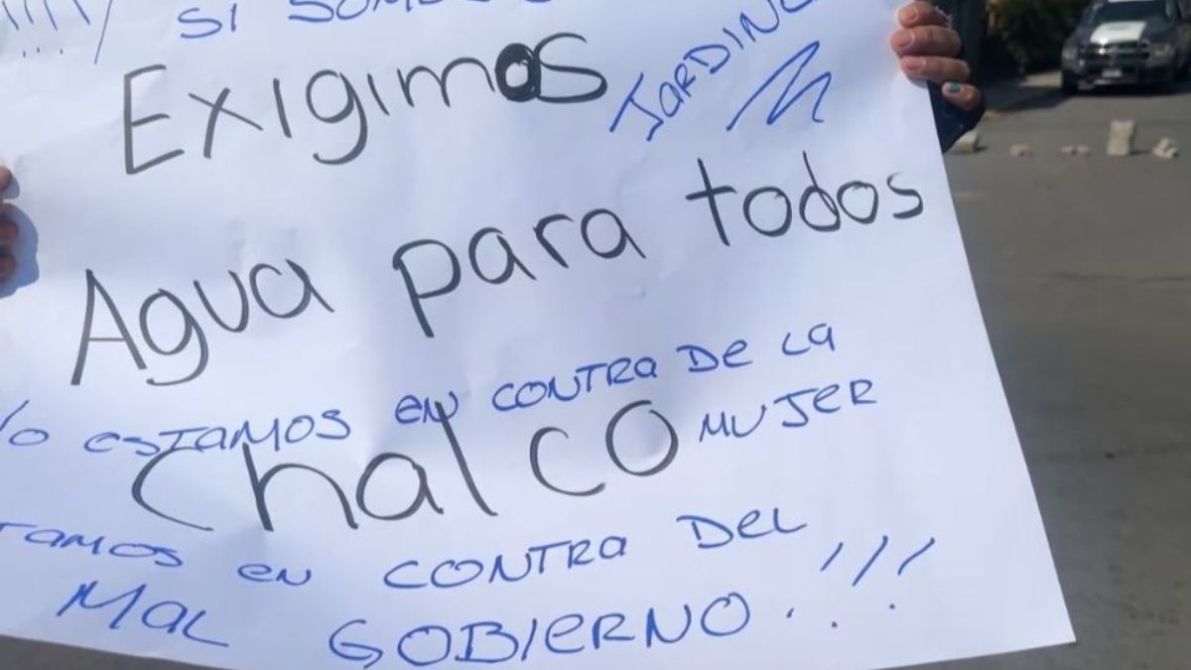 !!!! SI
Exigimos
JARDINE
Agua para todos
No ESTAMOS EN CONTRA De LA
MUJER
Chalco
TAMOS EN CONTRA DeL
MAL GOBIERNO. !!!